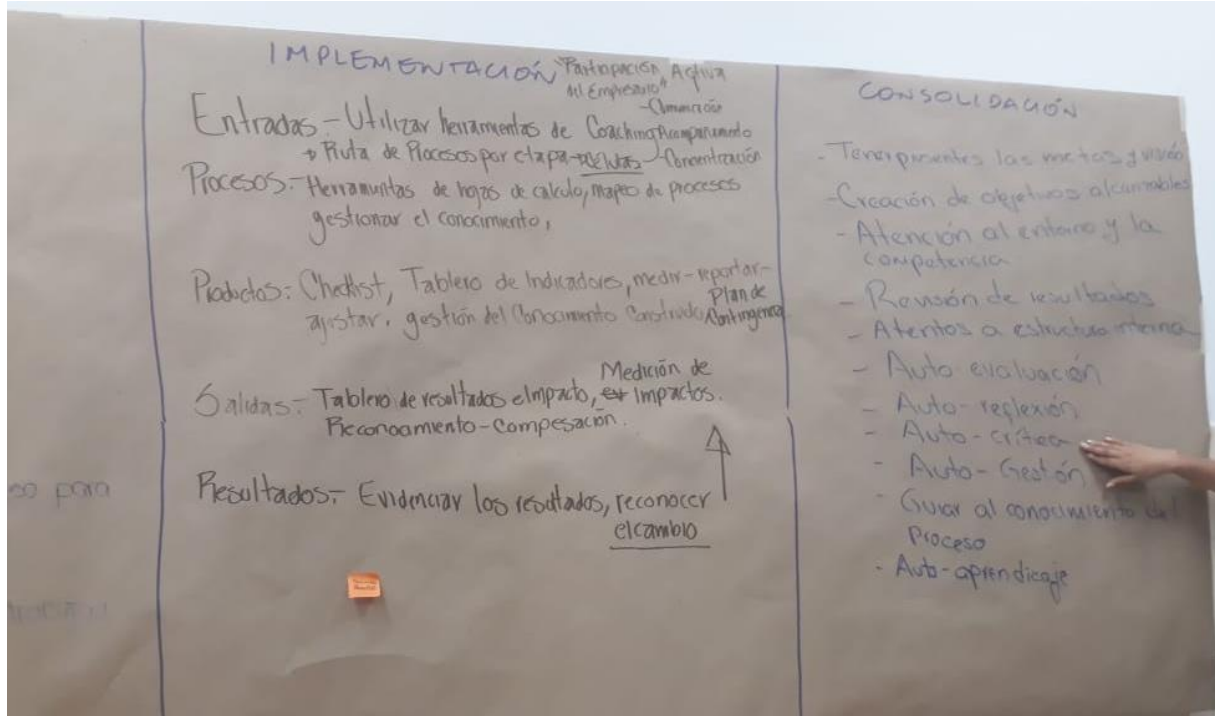 so para
IMPLEMENTACIÓN
"Participación Activa
del Empresario"
- Comunicación
Entradas - Utilizar herramientas de Coaching Acompañamiento
→ Ruta de Procesos por etapa - Concentración
Procesos:- Herramuntas de hojas de calculo, mapeo de procesos
gestionar el conocimiento,
Productos: Checklist, Tablero de Indicadores, medir-reportar-
ajustar, gestión del Conocimiento Construido, Plan de
Contingencia
Salidas:- Tablero de resultados e Impacto, Medición de
Impactos.
Reconocimiento-Compesación.
Resultados:- Evidenciar los resultados, reconocer
el cambio
CONSOLIDACIÓN
- Tener presentes las metas y visión
- Creación de objetivos alcanzables
- Atención al entorno y la
competencia
- Revisión de resultados
- Atentos a estructura interna
- Auto evaluación
- Auto-reflexión
- Auto-crítica
- Auto-Gestión
- Guiar al conocimiento del
Proceso
- Auto-aprendizaje